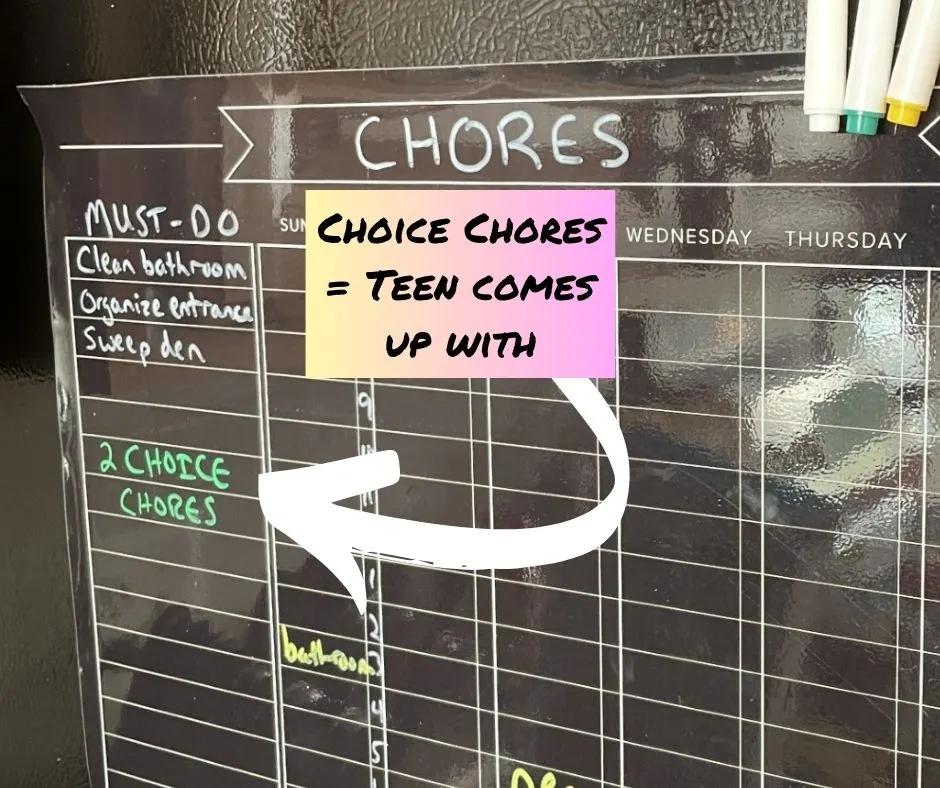 CHORES
MUST-DO
SUN
WEDNESDAY
THURSDAY
CHOICE CHORES
= TEEN COMES
UP WITH
Clean bathroom
Organize entrance
Sweep den
9
2 CHOICE
CHORES
1
2
bathroom
3
4
5